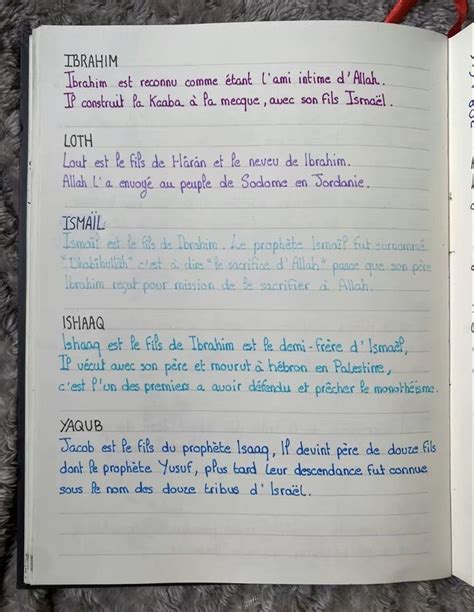 IBRAHIM
Ibrahim est reconnu comme étant l'ami intime d'Allah.
Il construit la Kaaba à la mecque, avec son fils Ismaël.
LOTH
Lout est le fils de Hârân et le neveu de Ibrahim.
Allah l'a envoyé au peuple de Sodome en Jordanie.
ISMAÏL
Ismaïl est le fils de Ibrahim. Le prophète Ismaïl fut surnommé
"Dhabîhullâh" c'est à dire "le sacrifice d'Allah" parce que son père
Ibrahim reçut pour mission de le sacrifier à Allah.
ISHAAQ
Ishaaq est le fils de Ibrahim est le demi-frère d'Ismaël,
Il vécut avec son père et mourut à hébron en Palestine,
c'est l'un des premiers a avoir défendu et prêcher le monothéisme.
YAQUB
Jacob est le fils du prophète Isaaq, Il devint père de douze fils
dont le prophète Yusuf, plus tard leur descendance fut connue
sous le nom des douze tribus d'Israël.